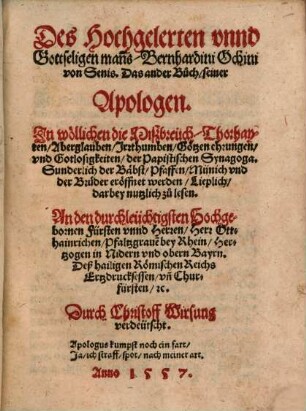 Des Hochgelerten vnnd
Gottseligen mañs Bernhardini Ochini
von Senis. Das ander Bůch/seiner
Apologen.
In wöllichen die Mißbreüch/Thorhay-
ten/Aberglauben/Irrthumben/Götzen ehrungen/
vnd Gotlosigkeiten/der Papistischen Synagoga.
Sunderlich der Bäbst/Pfaffen/Münich vnd
der Brüder eröffnet werden/Lieplich/
darbey nutzlich zů lesen.
An den durchleüchtigsten Hochge-
bornen Fürsten vnnd Herren/Herr Ott-
hainrichen/Pfaltzgraue bey Rhein/Her-
tzogen in Nidern vnd obern Bayrn.
Deß hailigen Römischen Reichs
Ertzdrucksessen/vñ Chur-
fürsten/ꝛc.
Durch Christoff Wirsung
verdeütscht.
Apologus kumpt noch ein fart/
Ja/ich straff/spot/nach meiner art.
Anno 1557.